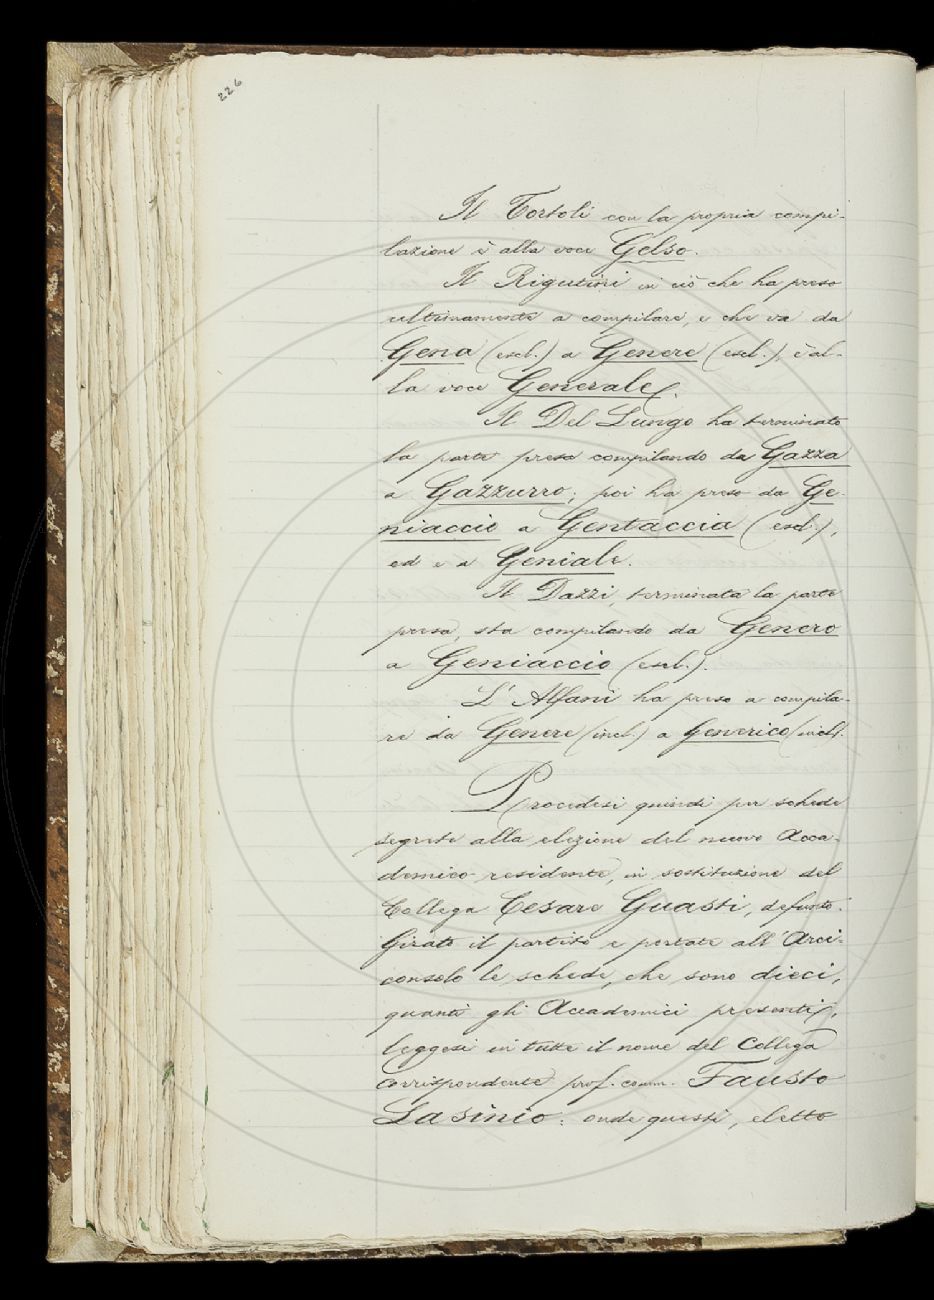 226
Il Tortoli con la propria compi-
lazione è alla voce Gelso.
Il Rigutini in ciò che ha preso
ultimamente a compilare, e che va da
Gena (escl.) a Genere (escl.), è al-
la voce Generale.
Il Del Lungo ha terminato
la parte presa compilando da Gazza
a Gazzurro; poi ha preso da Ge-
niaccio a Gentaccia (escl.),
ed è a Geniale.
Il Dazzi, terminata la parte
presa, sta compilando da Genero
a Geniaccio (escl.).
L'Alfani ha preso a compila-
re da Genere (incl.) a Generico (incl.).
Procedesi quindi per schede
segrete alla elezione del nuovo Acca-
demico residente, in sostituzione del
Collega Cesare Guasti, defunto.
Girato il partito e portate all'Arci-
consolo le schede, che sono dieci,
quanti gli Accademici presenti,
leggesi in tutte il nome del Collega
Corrispondente prof. comm. Fausto
Lasinio: onde questi, eletto